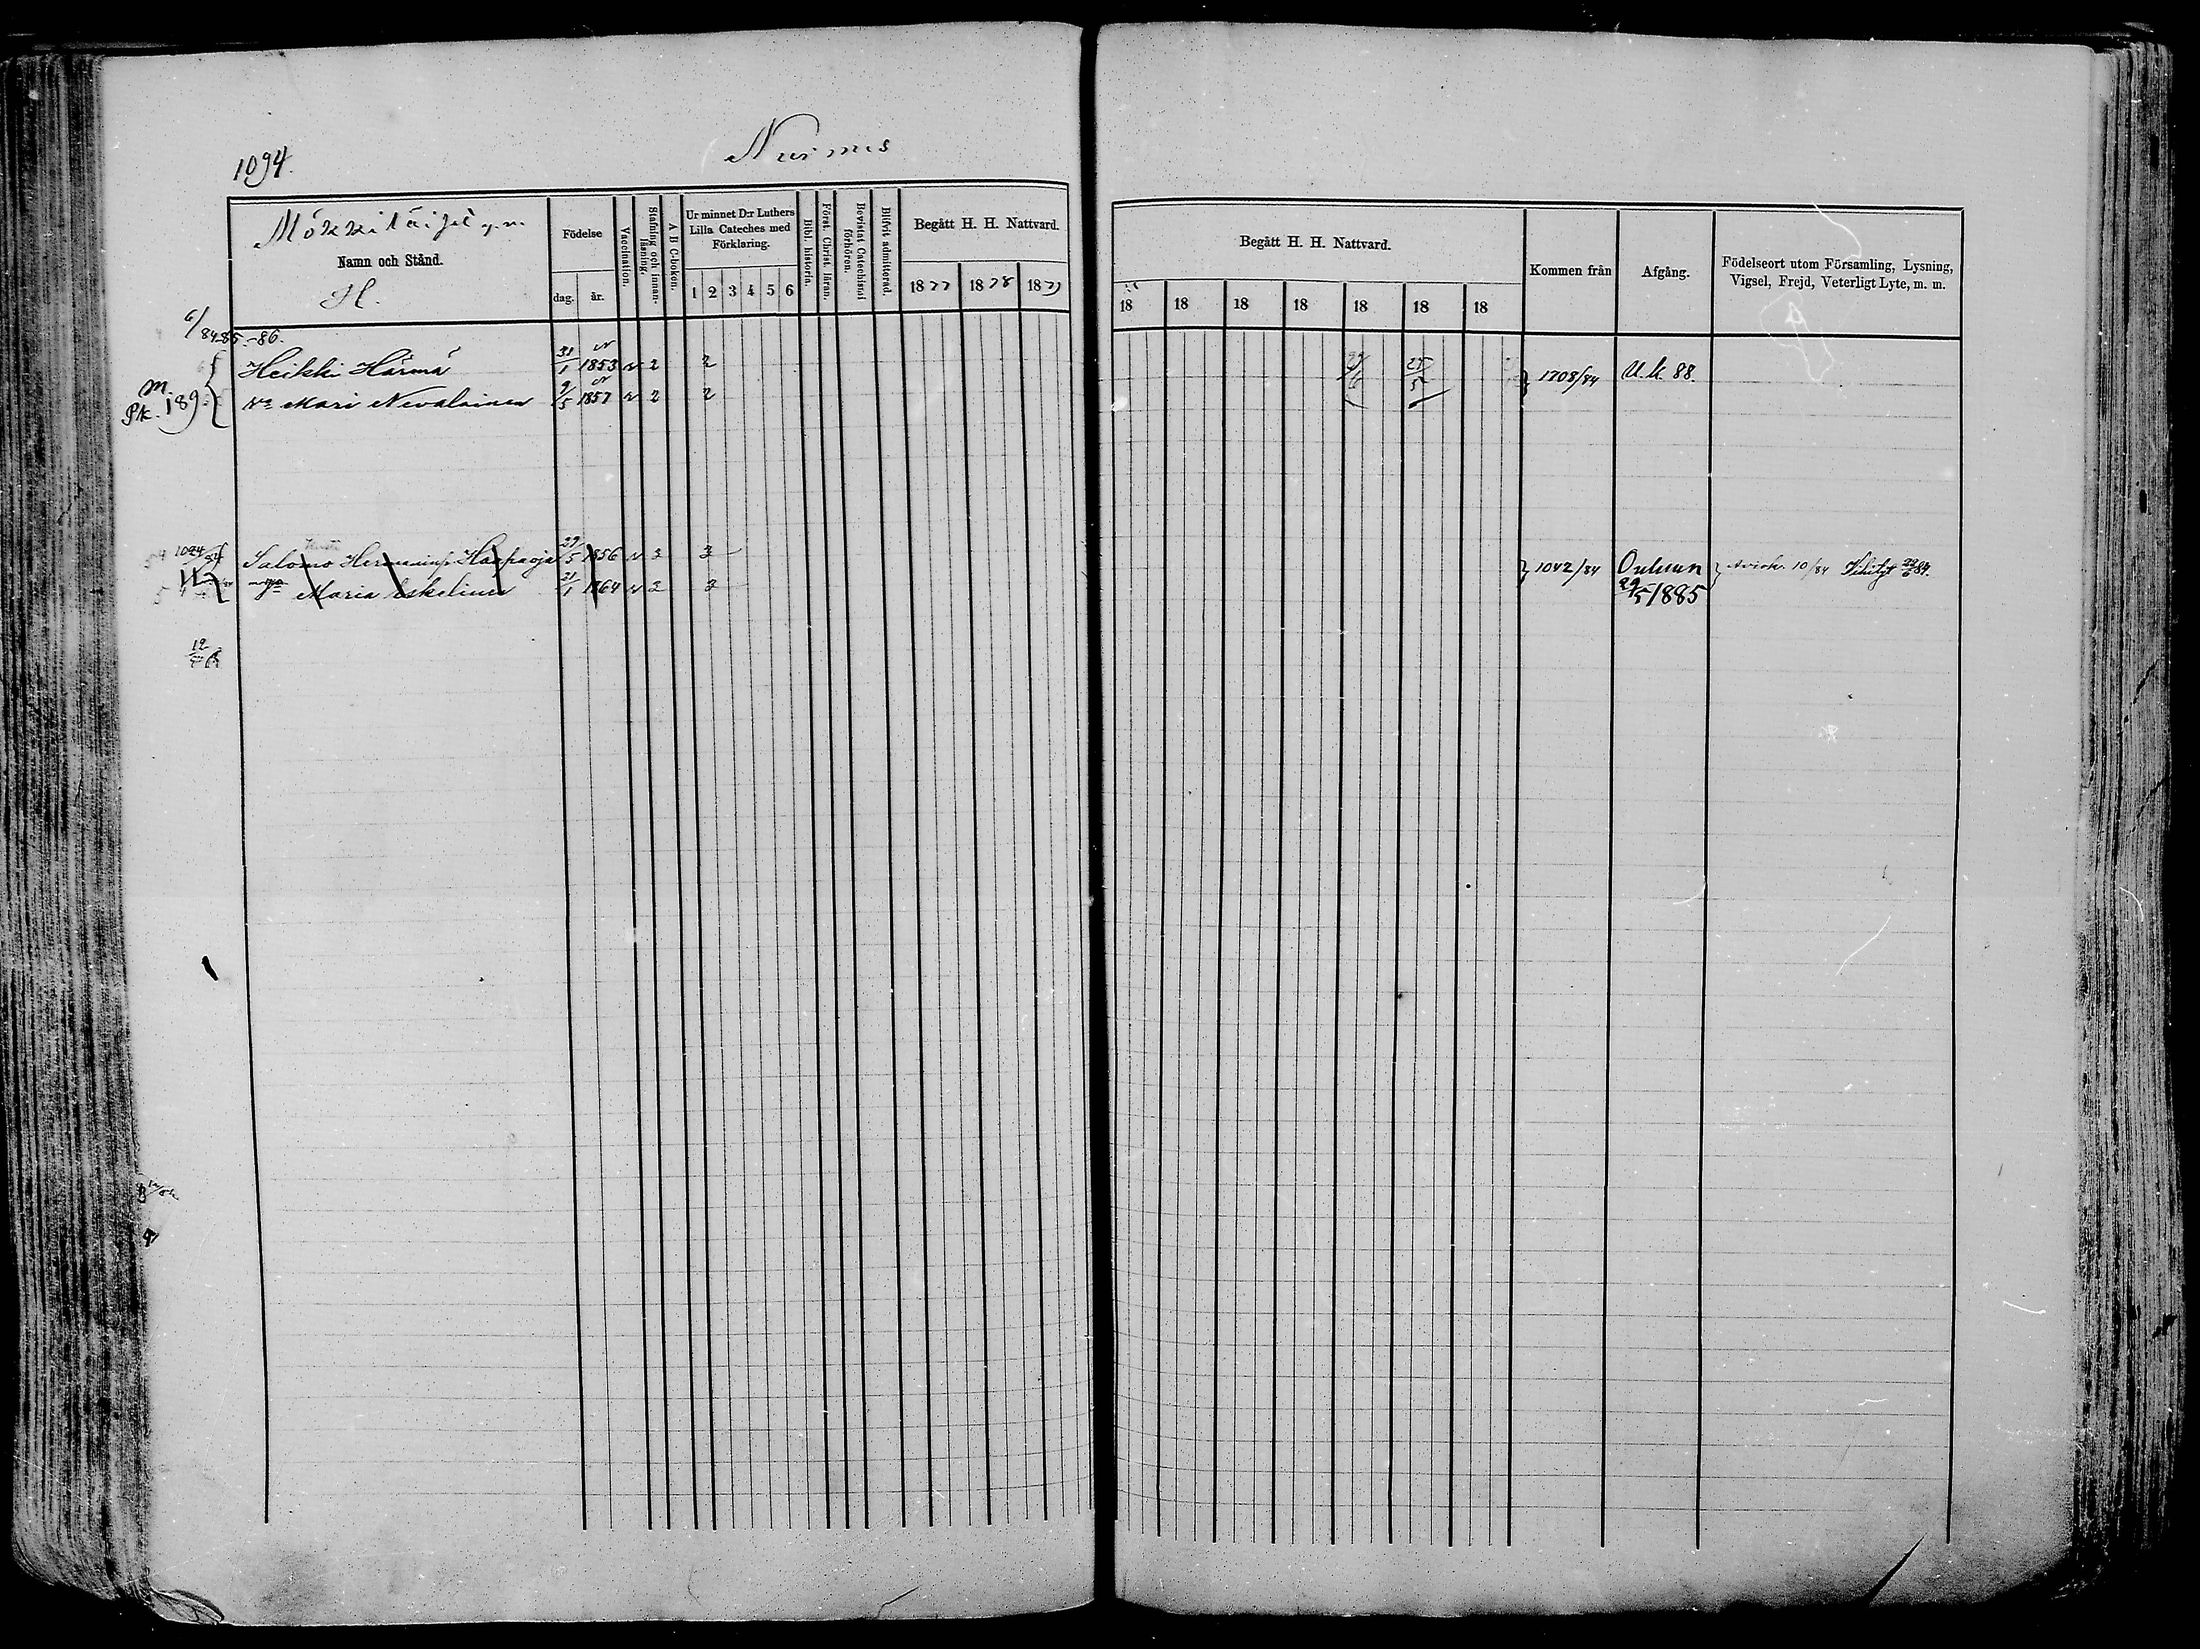 1094.
Nurmes
Mökkiläiset y.m.
Namn och Stånd.
H.
Födelse
dag. år.
Vaccination.
Stafning och innanläsning.
A B C-boken.
Ur minnet D:r Luthers Lilla Cateches med Förklaring.
1 2 3 4 5 6
Bibl. historia.
Först. Christ. läran.
Bevistat Catechismi förhören.
Blifvit admitterad.
Begått H. H. Nattvard.
1877 1878 1879
Begått H. H. Nattvard.
18 18 18 18 18 18 18
Kommen från
Afgång.
Födelseort utom Församling, Lysning, Vigsel, Frejd, Veterligt Lyte, m. m.
6/84 85.-86.
Heikki Härmä 31/1 1853 v 2 2 25/5 1708/84 U.k. 88.
m. Pk. 189
Va Mari Nevalainen 9/5 1857 v 2 2
1094/84
Salomo Hermaninp. Haapaoja 29/5 1856 v 3 3 1042/84 Ouluun 29/5 1885 Aviok. 10/84 Vihityt 22/6 84.
Maria Eskelinen 21/1 1864 v 3 3